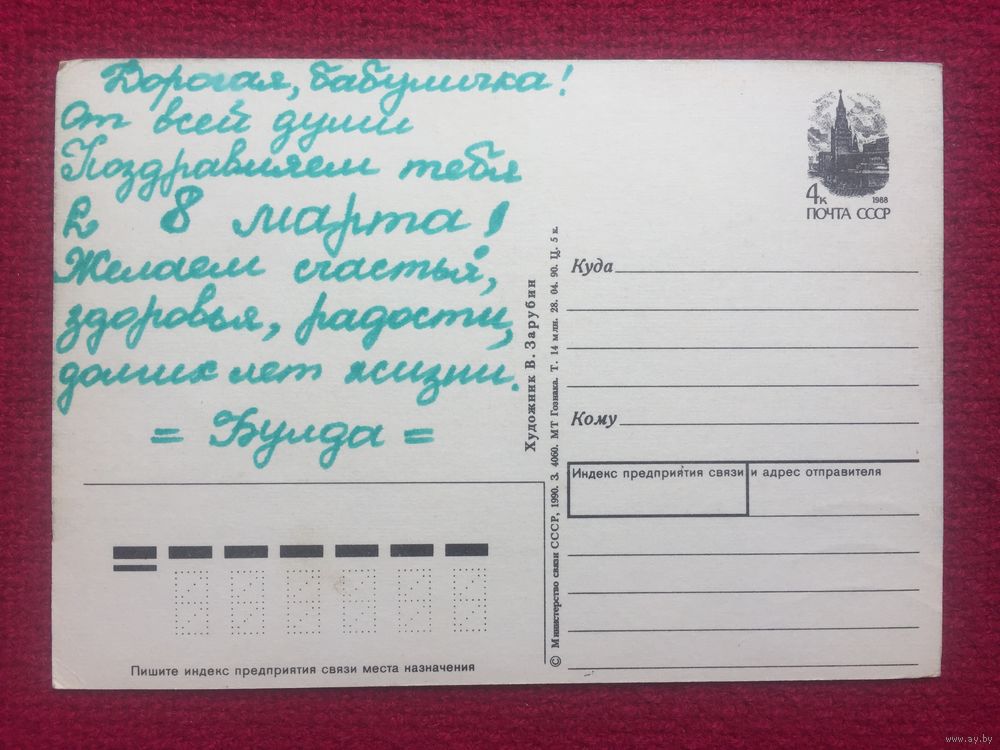 Дорогая, бабуличка!
От всей души
Поздравляем тебя
с 8 марта!
Желаем счастья,
здоровья, радости,
долгих лет жизни.
= Булда =
4к
1988
ПОЧТА СССР
Куда
Кому
Индекс предприятия связи и адрес отправителя
Художник В. Зарубин
© Министерство связи СССР, 1990. З. 4060. МТ Гознака. Т. 14 млн. 28. 04. 90. Ц. 5 к.
Пишите индекс предприятия связи места назначения
www.ay.by